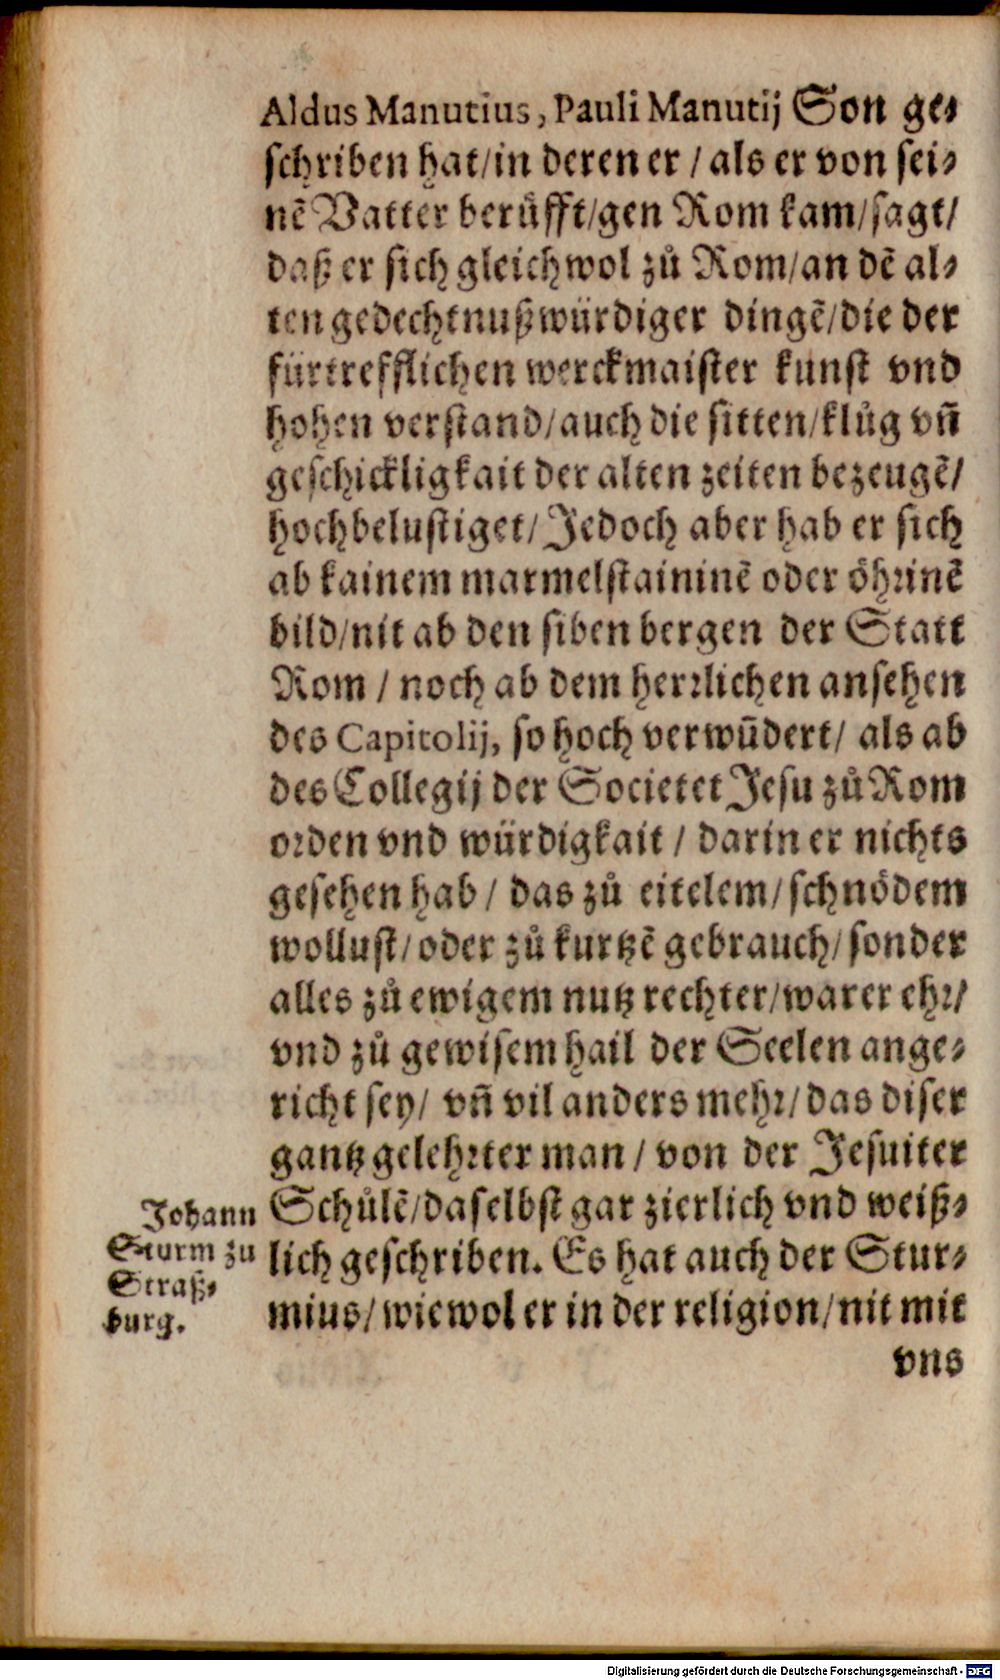 Aldus Manutius, Pauli Manutij Son ge⸗
schriben hat/in deren er / als er von sei⸗
nẽ Vatter berůfft/gen Rom kam/sagt/
daß er sich gleichwol zů Rom/an dẽ al⸗
ten gedechtnußwürdiger dingẽ/die der
fürtrefflichen werckmaister kunst vnd
hohen verstand/auch die sitten/klůg vñ
geschickligkait der alten zeiten bezeugẽ/
hochbelustiget/Jedoch aber hab er sich
ab kainem marmelstaininẽ oder öhrinẽ
bild/nit ab den siben bergen der Statt
Rom / noch ab dem herrlichen ansehen
des Capitolij, so hoch verwũdert/ als ab
des Collegij der Societet Jesu zů Rom
orden vnd würdigkait / darin er nichts
gesehen hab / das zů eitelem/schnödem
wollust/oder zů kurtzẽ gebrauch/sonder
alles zů ewigem nutz rechter/warer ehr/
vnd zů gewisem hail der Seelen ange⸗
richt sey/ vñ vil anders mehr/das diser
gantz gelehrter man / von der Jesuiter
Schůlẽ/daselbst gar zierlich vnd weiß⸗
lich geschriben. Es hat auch der Stur⸗
mius/wiewol er in der religion/nit mit
vns
Johann
Sturm zu
Straß⸗
burg.
Digitalisierung gefördert durch die Deutsche Forschungsgemeinschaft - DFG